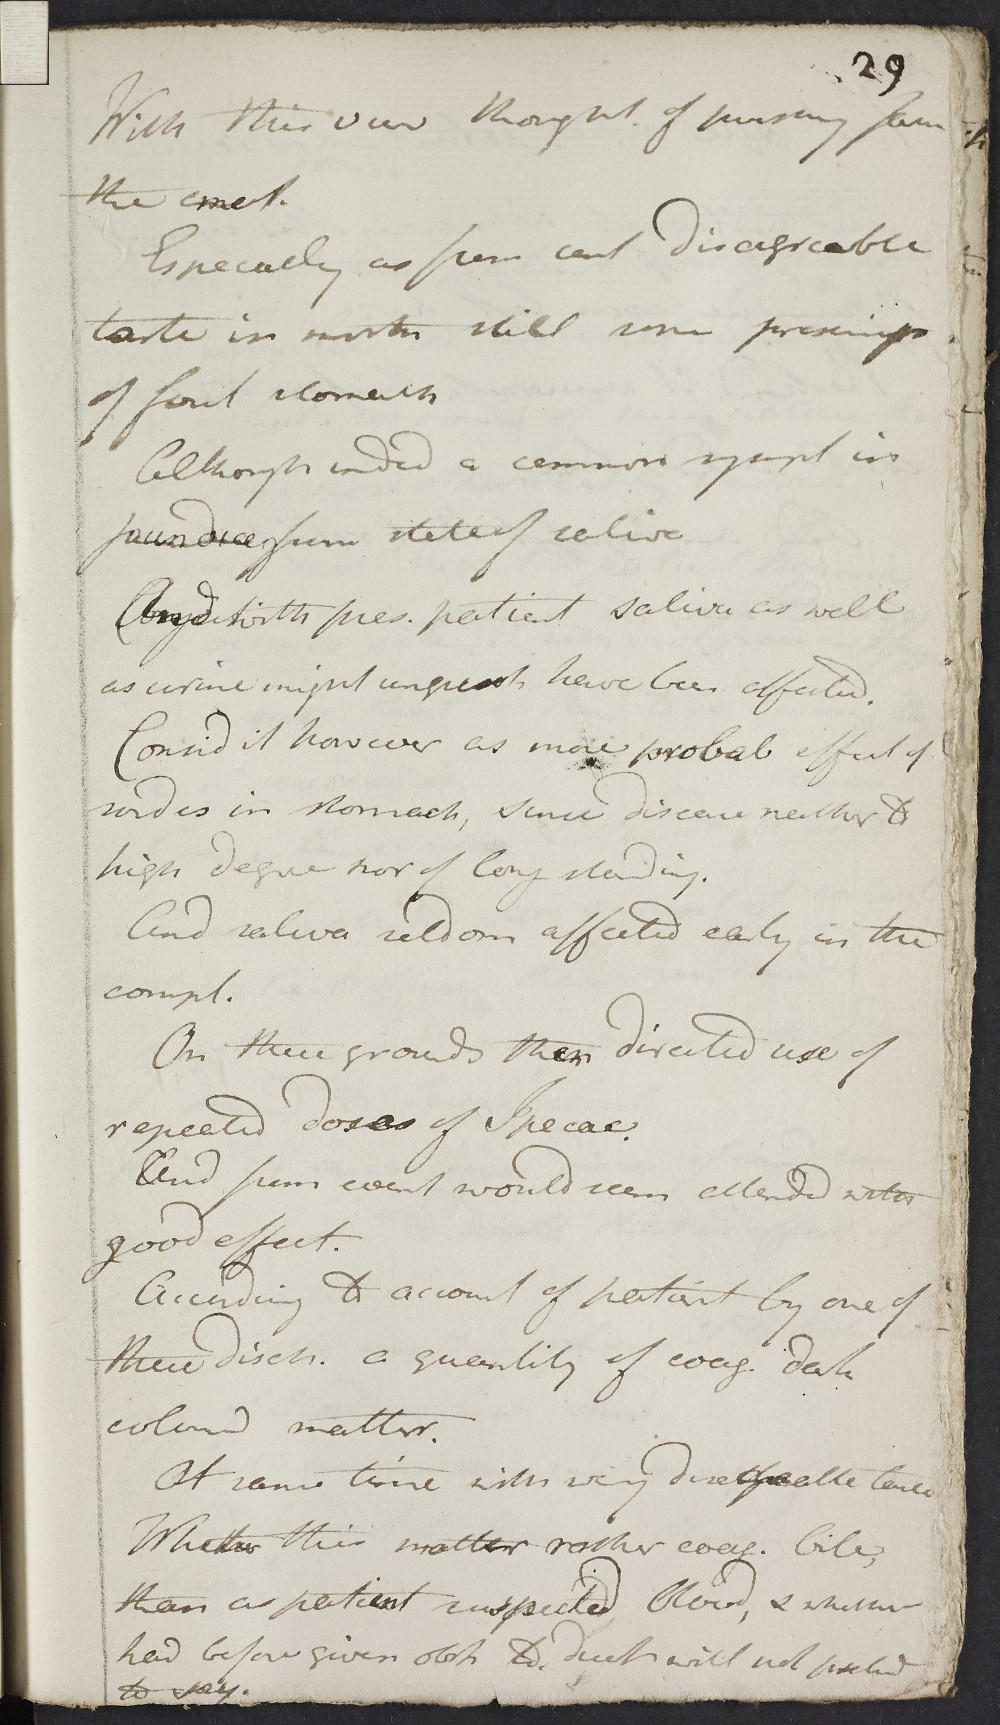 29
With this view thought of pursuing farther
the emet.
Especially as from cont disagreeable
taste in mouth still some presump
of foul stomach
Although indeed a common sympt in
Jaundice from state of saliva
And with pres. patient saliva as well
as urine might unquest have been affected.
Consid it however as more probab effect of
sordes in stomach, since disease neither to
high degree nor of long standing.
And saliva seldom affected early in the
compl.
On these grounds then directed use of
repeated doses of Ipecac.
And from event would seem attended with
good effect.
According to account of patient by one of
these disch. a quantity of coag. dark
coloured matter.
At same time with very disagreeable taste
Whether this matter rather coag. bile,
than as patient suspected Blood, & whether
had before given obst to duct will not pretend
to say.